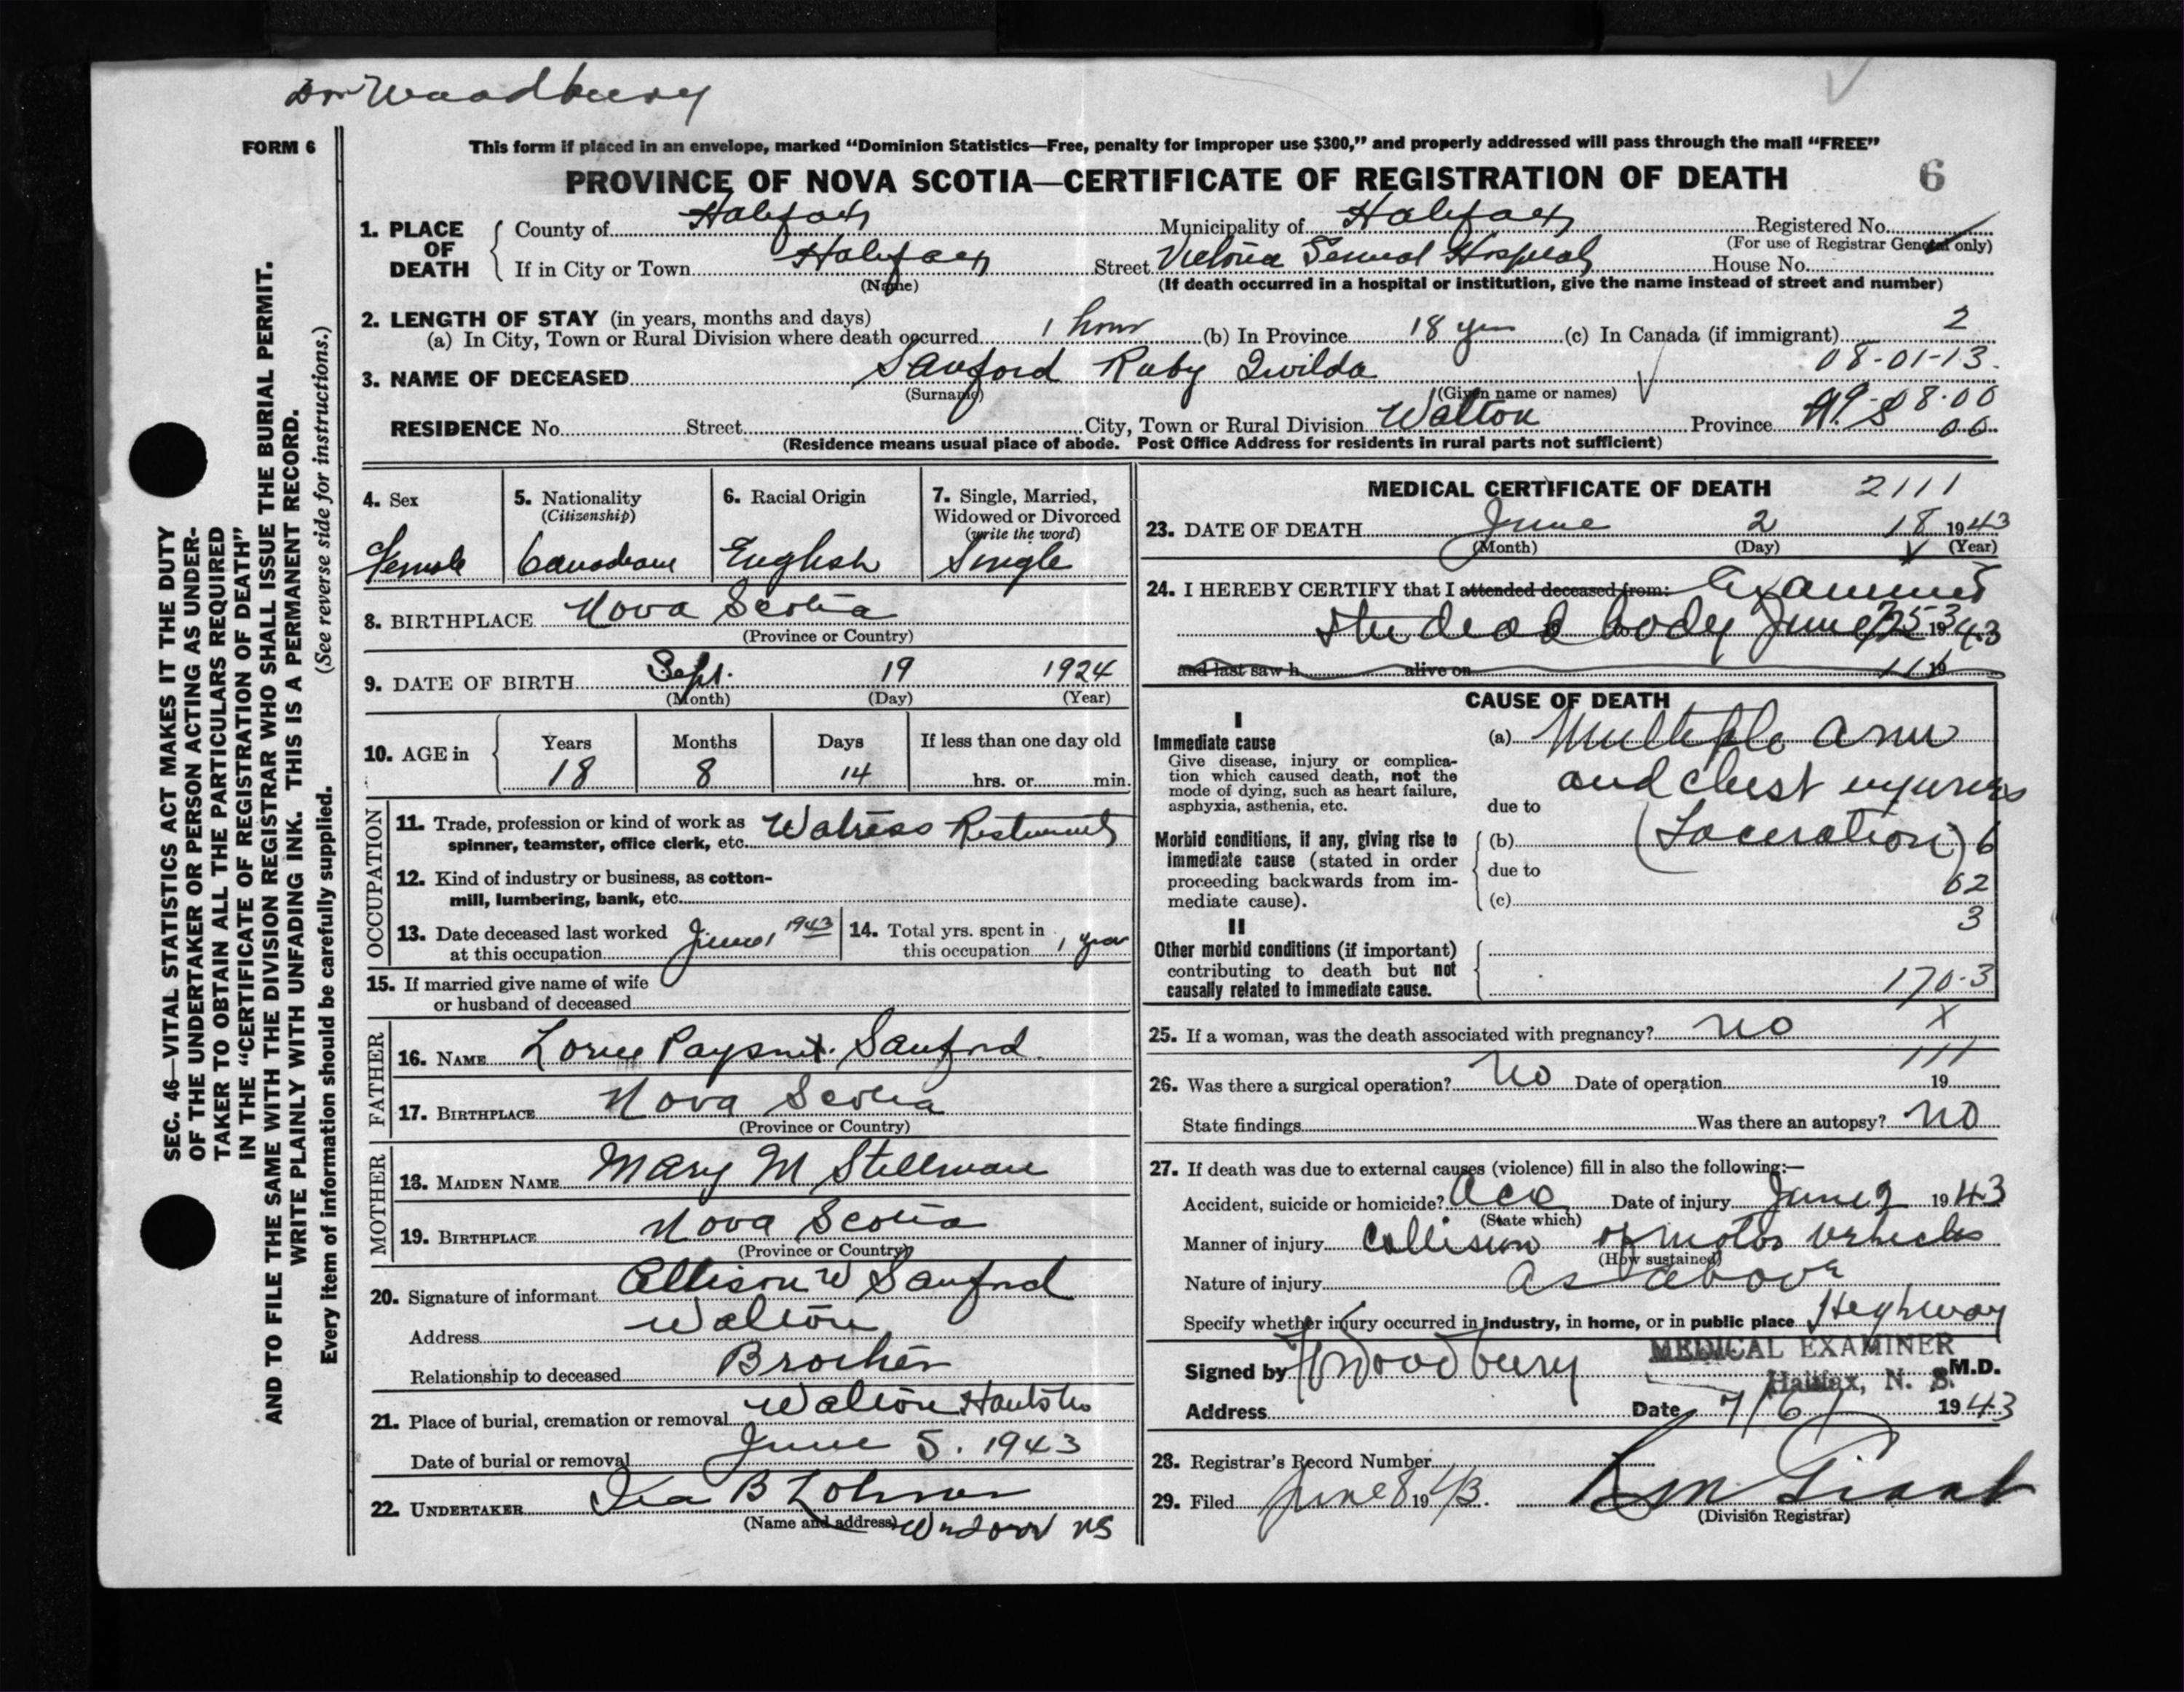 Dr Woodbury
FORM 6
This form if placed in an envelope, marked “Dominion Statistics—Free, penalty for improper use $300,” and properly addressed will pass through the mail “FREE”
PROVINCE OF NOVA SCOTIA—CERTIFICATE OF REGISTRATION OF DEATH 6
SEC. 46—VITAL STATISTICS ACT MAKES IT THE DUTY
OF THE UNDERTAKER OR PERSON ACTING AS UNDER-
TAKER TO OBTAIN ALL THE PARTICULARS REQUIRED
IN THE “CERTIFICATE OF REGISTRATION OF DEATH”
AND TO FILE THE SAME WITH THE DIVISION REGISTRAR WHO SHALL ISSUE THE BURIAL PERMIT.
WRITE PLAINLY WITH UNFADING INK. THIS IS A PERMANENT RECORD.
Every item of information should be carefully supplied. (See reverse side for instructions.)
1. PLACE OF DEATH County of Halifax Municipality of Halifax Registered No.
(For use of Registrar General only)
If in City or Town Halifax Street Victoria General Hospital House No.
(Name) (If death occurred in a hospital or institution, give the name instead of street and number)
2. LENGTH OF STAY (in years, months and days)
(a) In City, Town or Rural Division where death occurred 1 hour (b) In Province 18 yrs (c) In Canada (if immigrant) 2
08-01-13.
3. NAME OF DECEASED Sanford Ruby Twilda
(Surname) (Given name or names)
08.00
RESIDENCE No. Street City, Town or Rural Division Walton Province N.S 00
(Residence means usual place of abode. Post Office Address for residents in rural parts not sufficient)
4. Sex 5. Nationality (Citizenship) 6. Racial Origin 7. Single, Married, Widowed or Divorced (write the word)
Female Canadian English Single
8. BIRTHPLACE Nova Scotia
(Province or Country)
9. DATE OF BIRTH Sept. 19 1924
(Month) (Day) (Year)
10. AGE in Years Months Days If less than one day old
18 8 14 hrs. or min.
OCCUPATION
11. Trade, profession or kind of work as Watress Resturant
spinner, teamster, office clerk, etc.
12. Kind of industry or business, as cotton-
mill, lumbering, bank, etc.
13. Date deceased last worked at this occupation June 1 1943 14. Total yrs. spent in this occupation 1 year
15. If married give name of wife
or husband of deceased
FATHER
16. NAME Paysnt. Sanford
17. BIRTHPLACE Nova Scotia
(Province or Country)
MOTHER
18. MAIDEN NAME Mary M Stellman
19. BIRTHPLACE Nova Scotia
(Province or Country)
20. Signature of informant Allison W Sanford
Address Walton
Relationship to deceased Brother
21. Place of burial, cremation or removal Walton Hants Co
Date of burial or removal June 5. 1943
22. UNDERTAKER Ira B
(Name and address) Windsor NS
MEDICAL CERTIFICATE OF DEATH 2111
23. DATE OF DEATH June 2 18 1943
(Month) (Day) (Year)
24. I HEREBY CERTIFY that I attended deceased from: Examined
the dead body June 1943
and last saw h alive on 19
CAUSE OF DEATH
I
Immediate cause
Give disease, injury or complica-
tion which caused death, not the
mode of dying, such as heart failure,
asphyxia, asthenia, etc.
(a) Multiple arm
and chest injuries
due to
Morbid conditions, if any, giving rise to
immediate cause (stated in order
proceeding backwards from im-
mediate cause).
(b) (Laceration) 6
due to
62
(c)
3
II
Other morbid conditions (if important)
contributing to death but not
causally related to immediate cause.
170-3
25. If a woman, was the death associated with pregnancy? no X
26. Was there a surgical operation? No Date of operation 19
State findings Was there an autopsy? NO
27. If death was due to external causes (violence) fill in also the following:—
Accident, suicide or homicide? Acc Date of injury June 2 1943
(State which)
Manner of injury Collision of motor vehicles
(How sustained)
Nature of injury As above
Specify whether injury occurred in industry, in home, or in public place Highway
Signed by Woodbury MEDICAL EXAMINER M.D.
Halifax, N. S.
Address Date 7/6/ 1943
28. Registrar's Record Number
29. Filed June 8 1943. Grant
(Division Registrar)